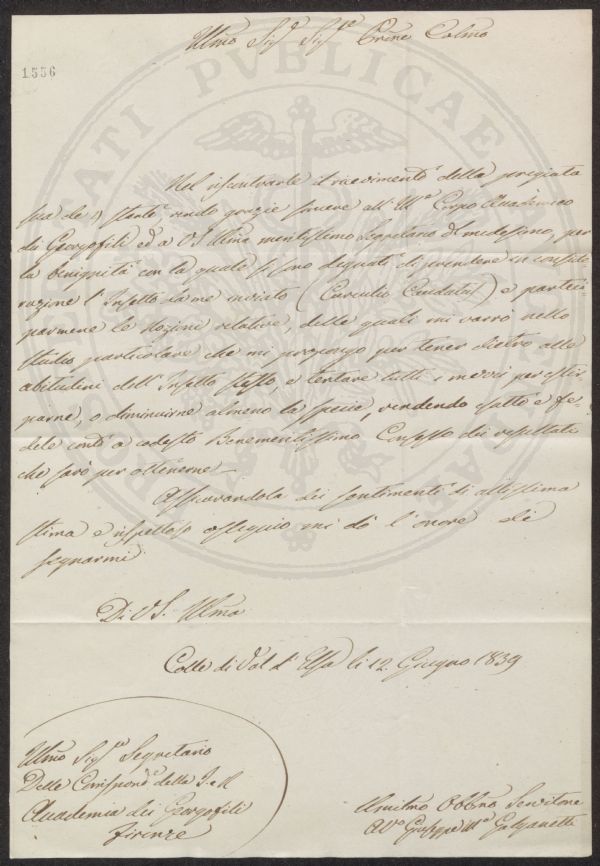 Illmo Sig.e Sig.e Prne Colmo
1556
Nel riscontrarle il ricevimento della pregiata
sua de 9 stante rendo grazie sincere all' Ill.o Corpo Accademico
dei Georgofili ed a VS Illma meritissimo Segretario del medesimo, per
la benignità con la quale si sono degnati di prendere in conside
razione l' Insetto da me inviato (Curculio Caudatus) e parteci
parmene le nozioni relative, delle quali mi varrò nello
studio particolare che mi propongo per tener dietro alle
abitudini dell' Insetto stesso, e tentare tutti i mezzi per estir
parne, o diminuirne almeno la specie, rendendo esatto e fe
dele conto a codesto Benemeritissimo Consesso dei resultati
che sarò per ottenerne —
Assicurandola dei sentimenti di altissima
stima e rispettoso ossequio mi dò l' onore di
segnarmi
Di VS. Illma
Colle di Val d' Elsa li 12. Giugno 1839
Illmo Sig.re Segretario
Delle Corrispond.e della I. e R.
Accademia dei Georgofili
Firenze
Umilmo Obblmo Servitore
Av.o Giuseppe M.a
SIGILLATI PVBLICAE